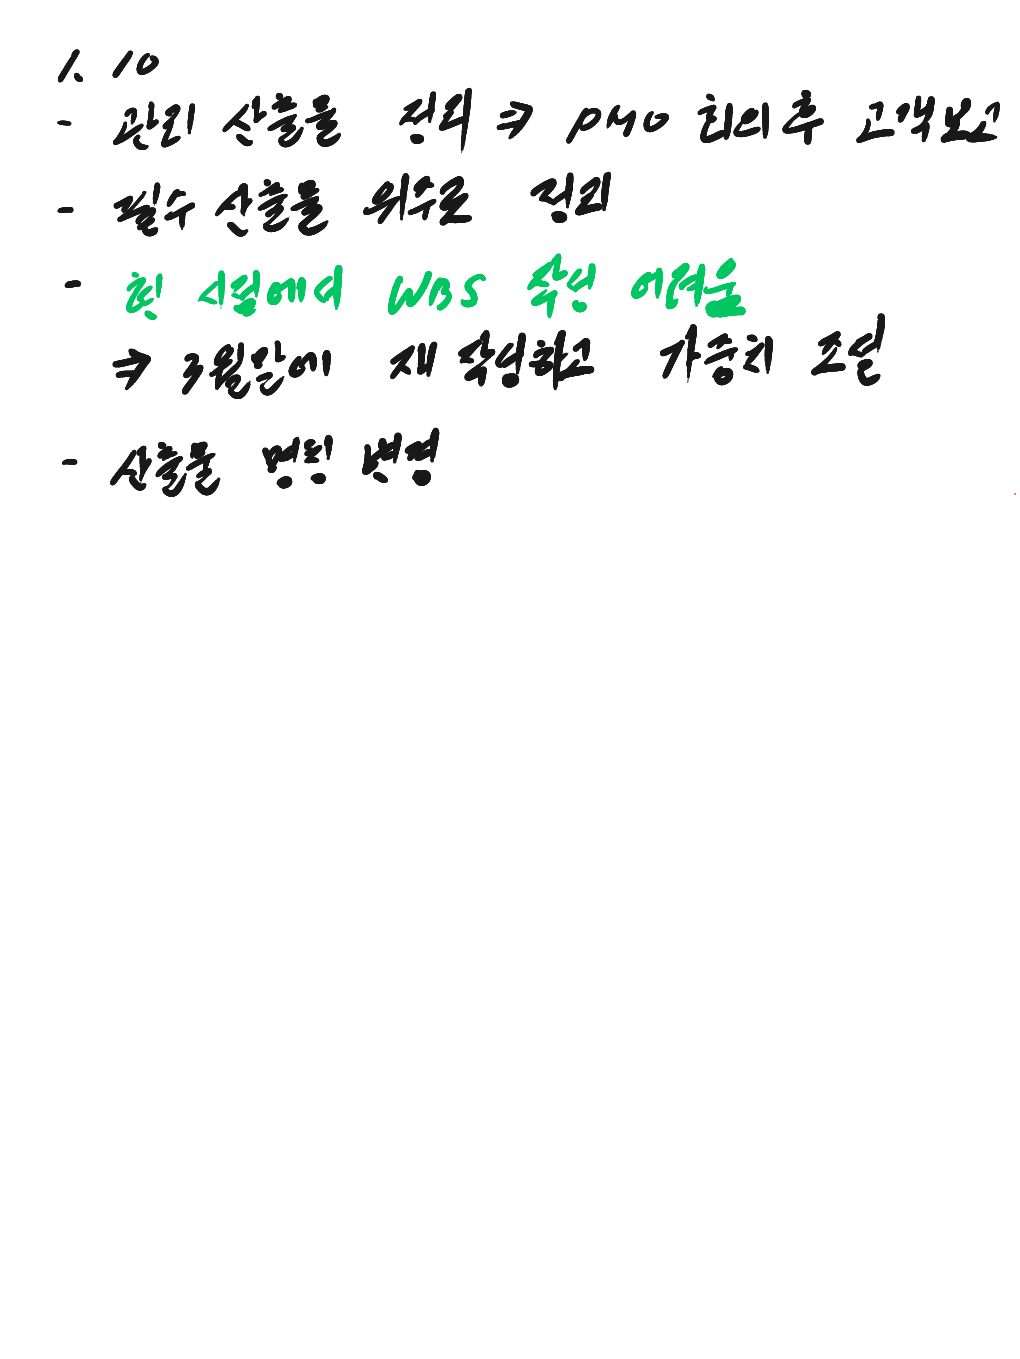 1. 10
- 관리 산출물 정리 ⇒ PMO 회의 후 고객보고
- 필수 산출물 위주로 정리
- 현 시점에서 WBS 작성 어려움
⇒ 3월말에 재 작성하고 가중치 조절
- 산출물 명칭 변경